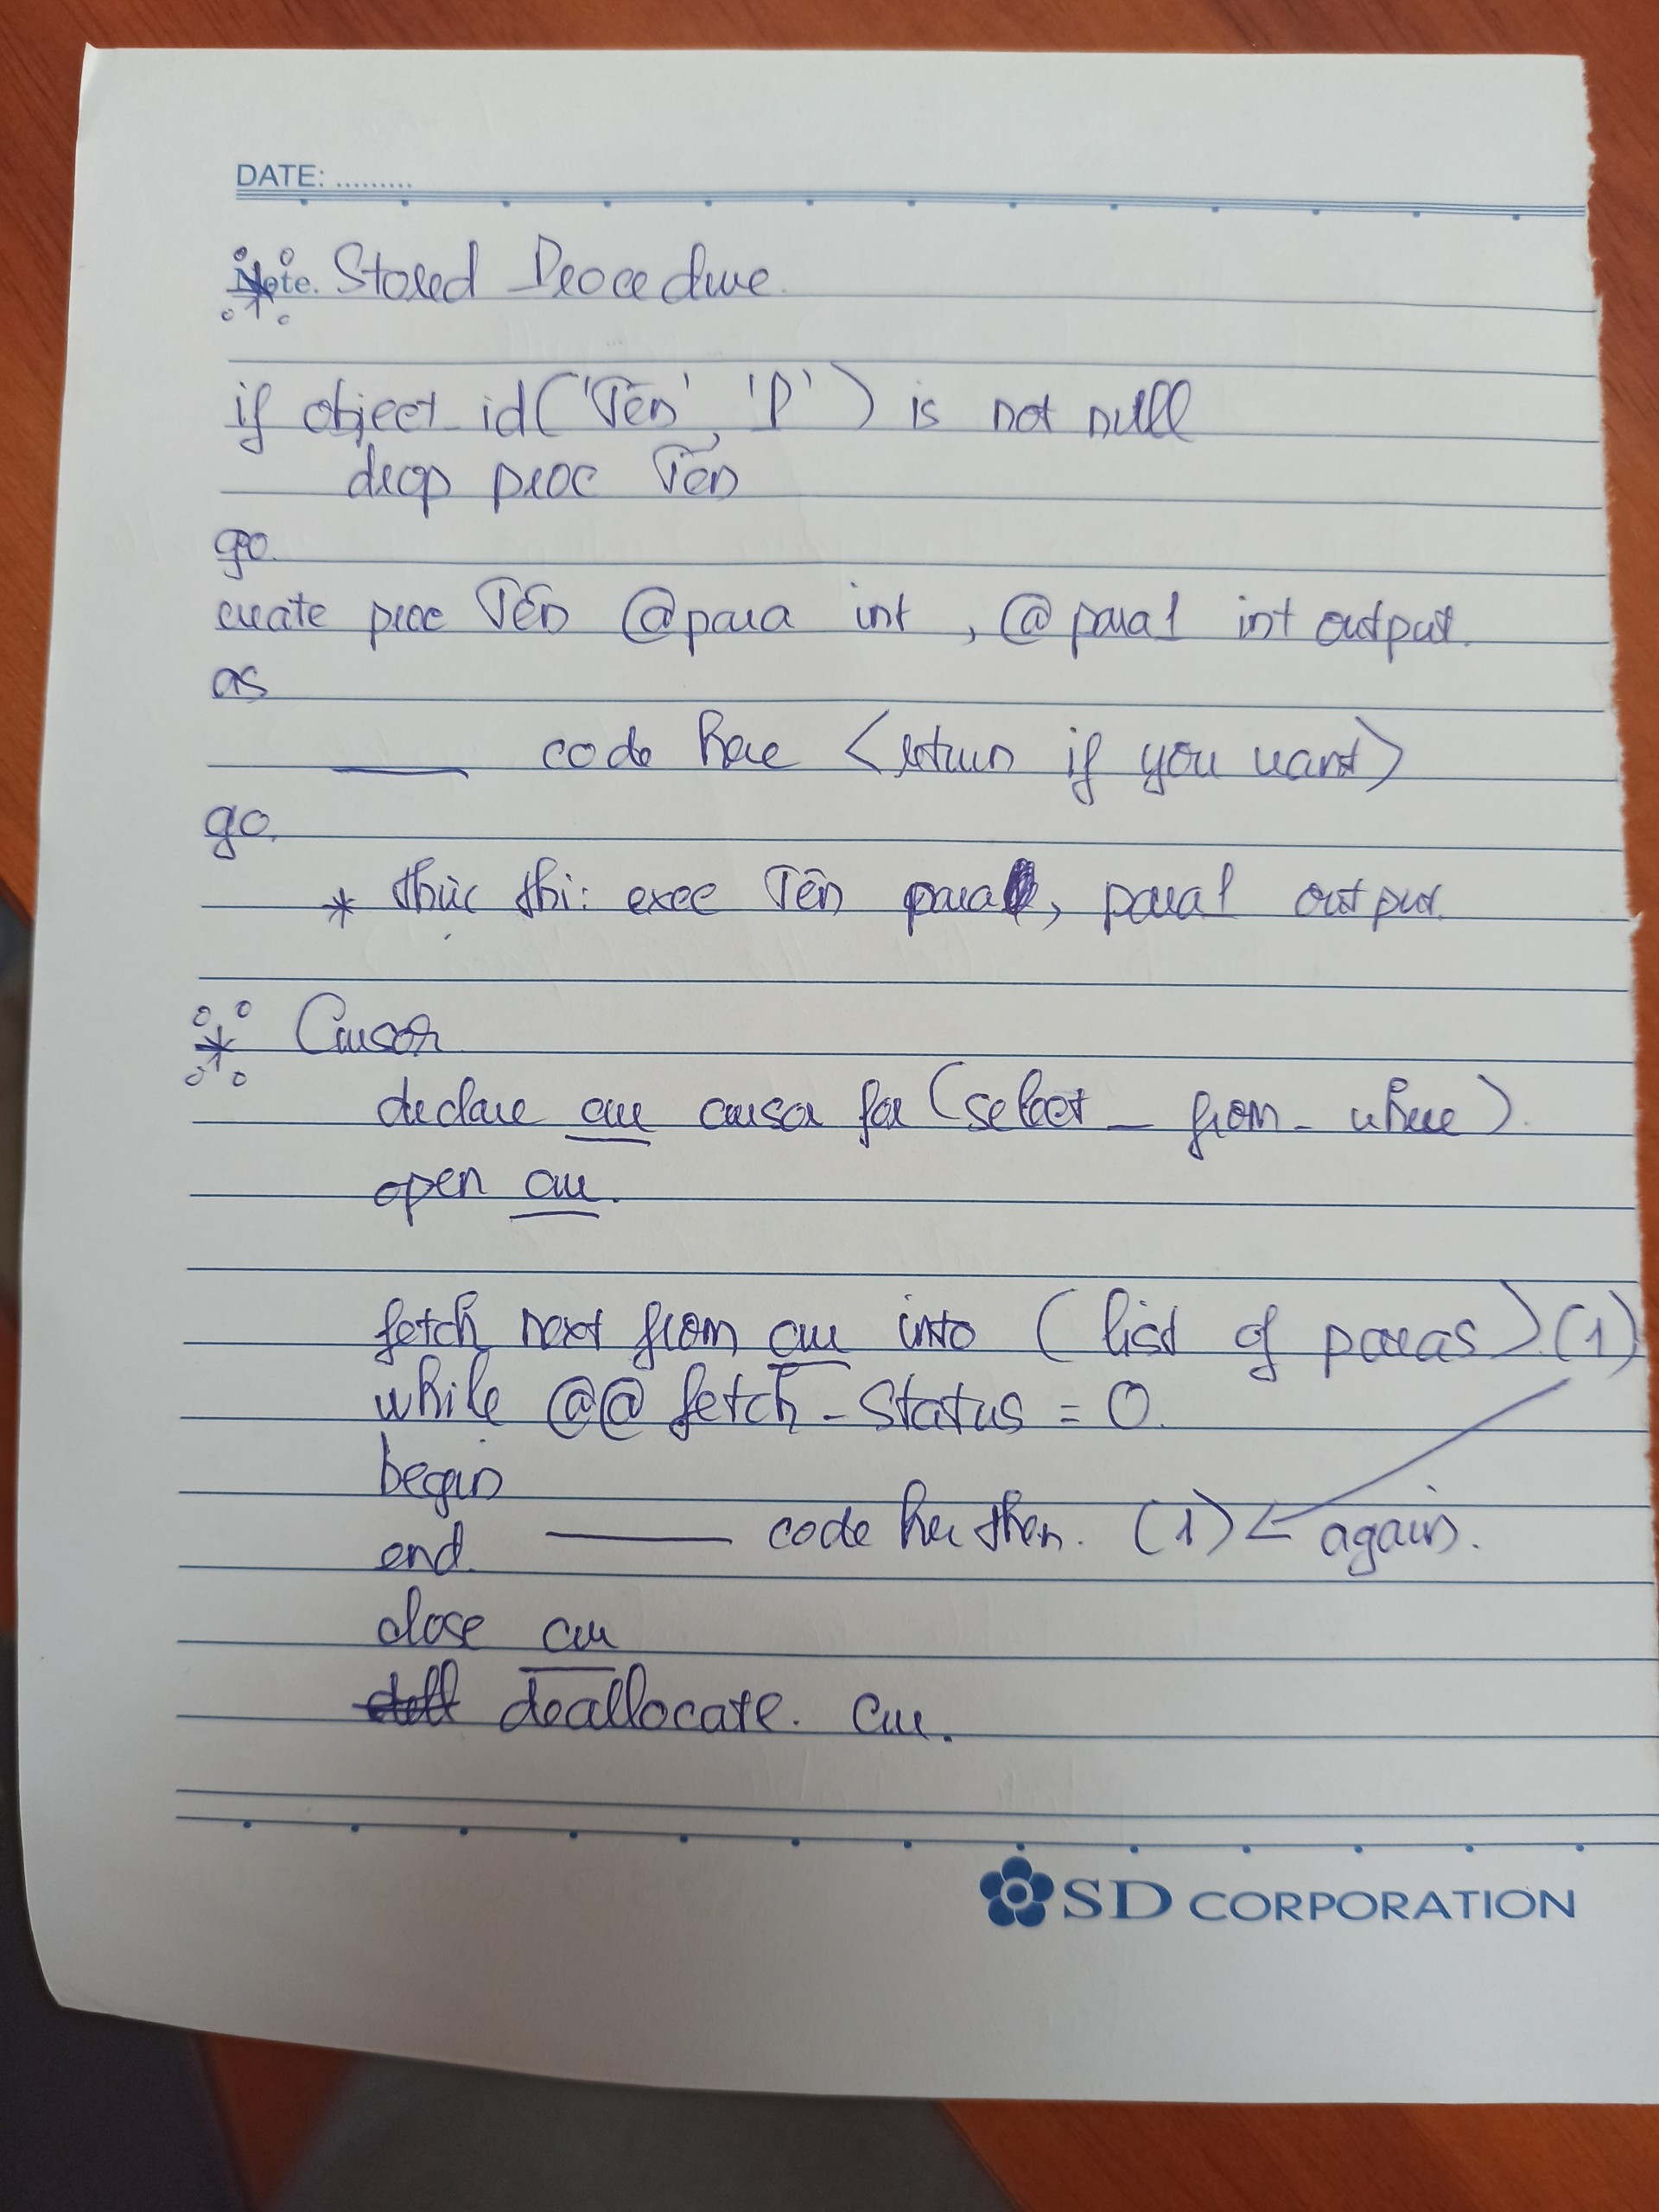 DATE: .........
Note. Stored Procedure.
if object_id('Tên', 'P') is not null
drop proc Tên
go.
create proc Tên @para int, @para1 int output.
as
code here <return if you want>
go.
* thực thi: exec Tên para, para1 output.
* Cursor
declare cur cursor for (select _ from _ where).
open cur.
fetch next from cur into (list of paras) (1)
while @@fetch_status = 0.
begin
code here then. (1) ← again.
end.
close cur
deallocate. cur.
SD CORPORATION